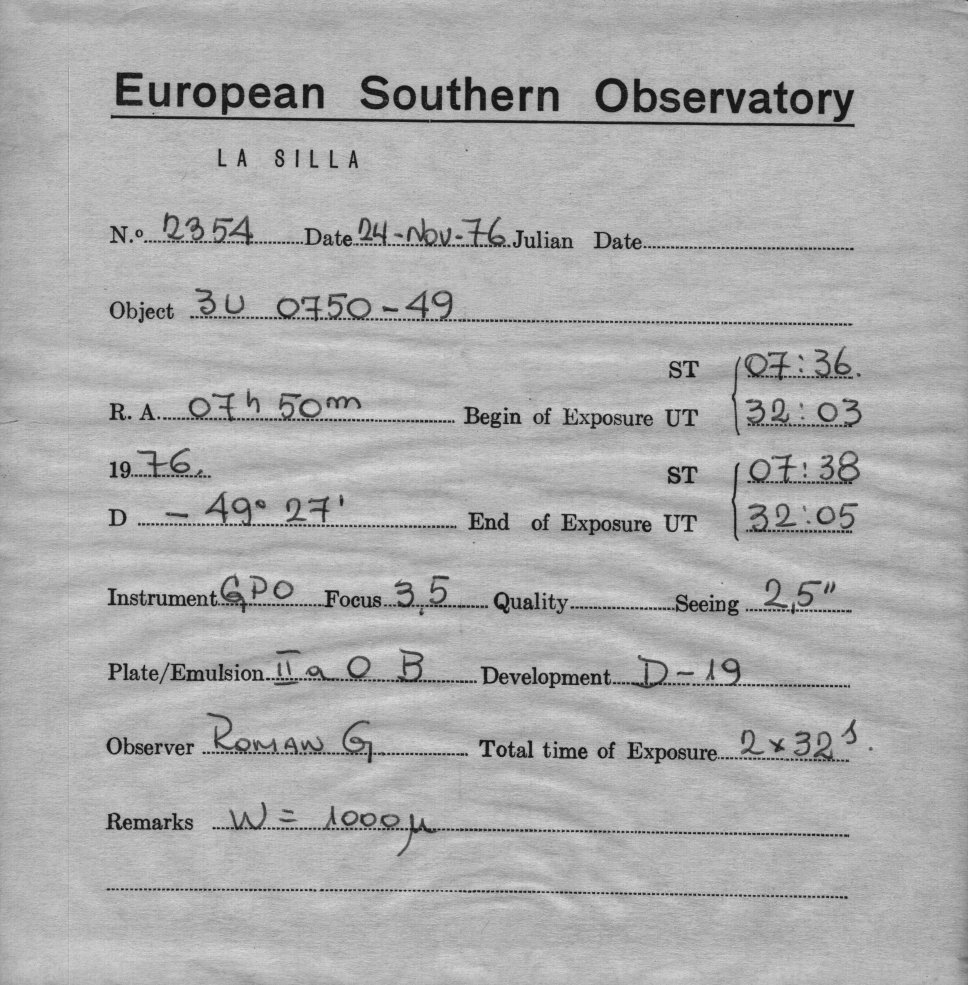 European Southern Observatory
LA SILLA
N.º 2354 Date 24-Nov-76 Julian Date
Object 3U 0750-49
ST 07:36.
R. A. 07h 50m Begin of Exposure UT 32:03
1976. ST 07:38
D - 49° 27' End of Exposure UT 32:05
Instrument GPO Focus 3,5 Quality Seeing 2,5"
Plate/Emulsion II a O B Development D-19
Observer ROMAN G Total time of Exposure 2×32s.
Remarks W = 1000 μ